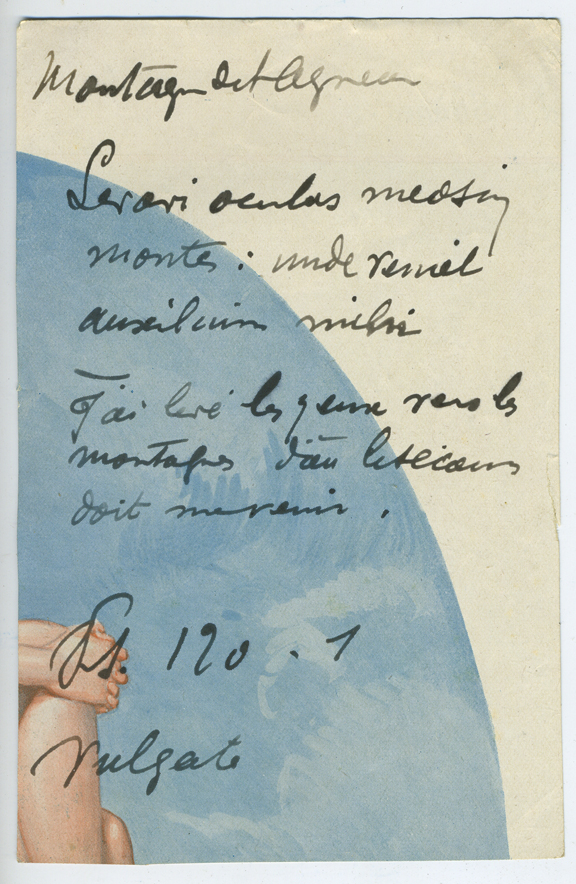 Montagne de l'Agneau
Levavi oculos meos in
montes : unde veniet
auxilium mihi
J'ai levé les yeux vers les
montagnes d'où le secours
doit me venir.
Ps. 120 - 1
Vulgate